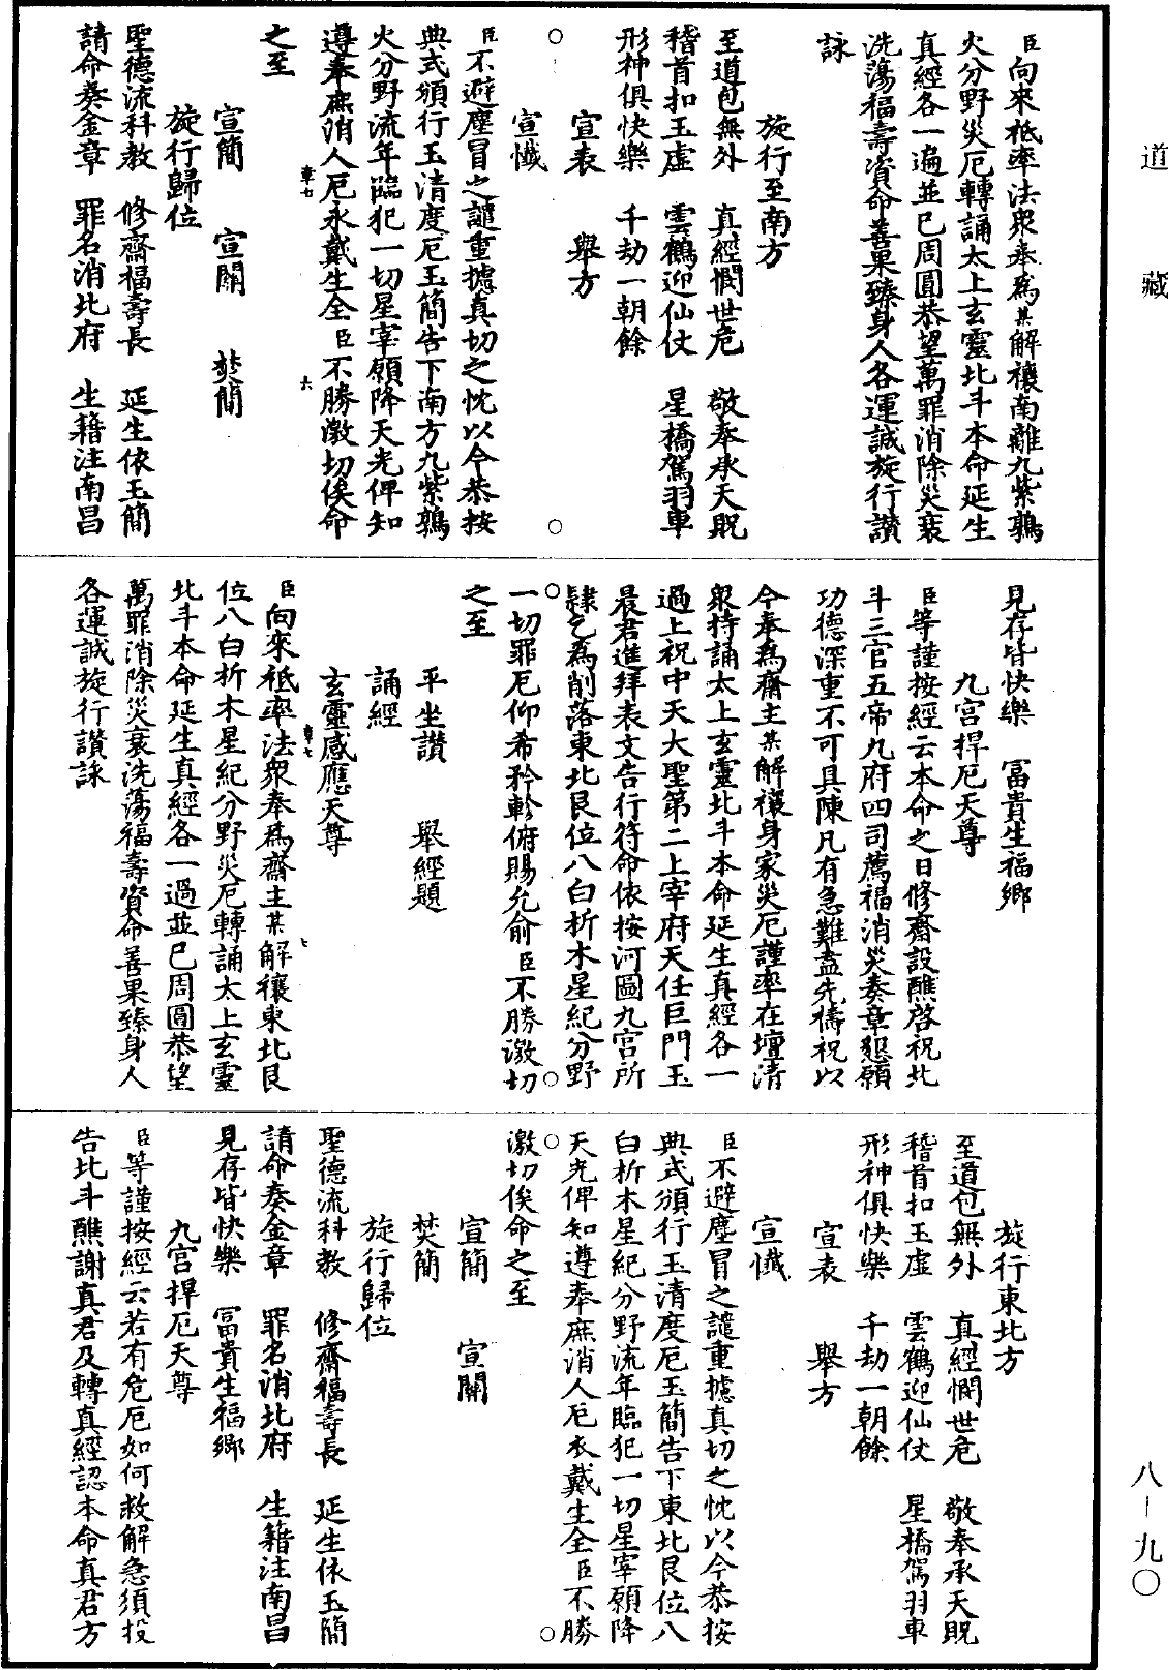 道藏
八－九〇
臣向來祗率法衆奉爲某解禳南離九紫鶉
火分野災厄轉誦太上玄靈北斗本命延生
真經各一遍並已周圓恭望萬罪消除災衰
洗蕩福壽資命善果臻身人各運誠旋行讃
詠
旋行至南方
至道包無外　真經憫世危　敬奉承天貺
稽首扣玉虛　雲鶴迎仙仗　星橋駕羽車
形神俱快樂　千劫一朝餘
宣表　舉方
宣懺
臣不避塵冒之譴重攄真切之忱以今恭按
典式頒行玉清度厄玉簡告下南方九紫鶉
火分野流年臨犯一切星宰願降天光俾知
遵奉庶消人厄永戴生全臣不勝激切俟命
之至
宣簡　宣關　焚簡
旋行歸位
聖德流科教　修齋福壽長　延生依玉簡
請命奏金章　罪名消北府　生籍注南昌
見存皆快樂　冨貴生福鄉
九宮捍厄天尊
臣等謹按經云本命之日修齋設醮啓祝北
斗三官五帝九府四司薦福消災奏章懇願
功德深重不可具陳凡有急難盍先禱祝以
今奉爲齋主某解禳身家災厄謹率在壇清
衆持誦太上玄靈北斗本命延生真經各一
過上祝中天大聖第二上宰府天任巨門玉
晨君進拜表文告行符命依按河圖九宮所
隸乞爲削落東北艮位八白析木星紀分野
一切罪厄仰希矜軫俯賜允俞臣不勝激切
之至
平坐讃　舉經題
誦經
玄靈感應天尊
臣向來祗率法衆奉爲齋主某解禳東北艮
位八白析木星紀分野災厄轉誦太上玄靈
北斗本命延生真經各一過並已周圓恭望
萬罪消除災衰洗蕩福壽資命善果臻身人
各運誠旋行讃詠
旋行東北方
至道包無外　真經憫世危　敬奉承天貺
稽首扣玉虛　雲鶴迎仙仗　星橋駕羽車
形神俱快樂　千劫一朝餘
宣表　舉方
宣懺
臣不避塵冒之譴重攄真切之忱以今恭按
典式頒行玉清度厄玉簡告下東北艮位八
白析木星紀分野流年臨犯一切星宰願降
天光俾知遵奉庶消人厄永戴生全臣不勝
激切俟命之至
宣簡　宣關
焚簡
旋行歸位
聖德流科教　修齋福壽長　延生依玉簡
請命奏金章　罪名消北府　生籍注南昌
見存皆快樂　冨貴生福鄉
九宮捍厄天尊
臣等謹按經云若有危厄如何救解急須投
告北斗醮謝真君及轉真經認本命真君方